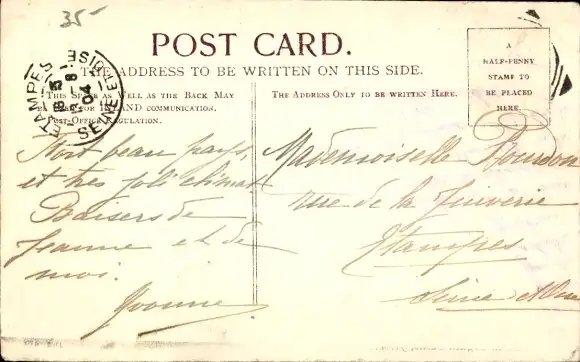 35-
POST CARD.
THE ADDRESS TO BE WRITTEN ON THIS SIDE.
A
HALF-PENNY
STAMP TO
BE PLACED
HERE.
ETAMPES
SEINE-ET-OISE
8 04
This Space as Well as the Back May
be used for INLAND communication.
Post-Office Regulation.
The Address Only to be written Here.
Mort beau pays,
et très joli climat
Baisers de
Jeanne et de
moi.
Yvonne
Mademoiselle
rue de la Juiverie
Etampes
Seine et Oise